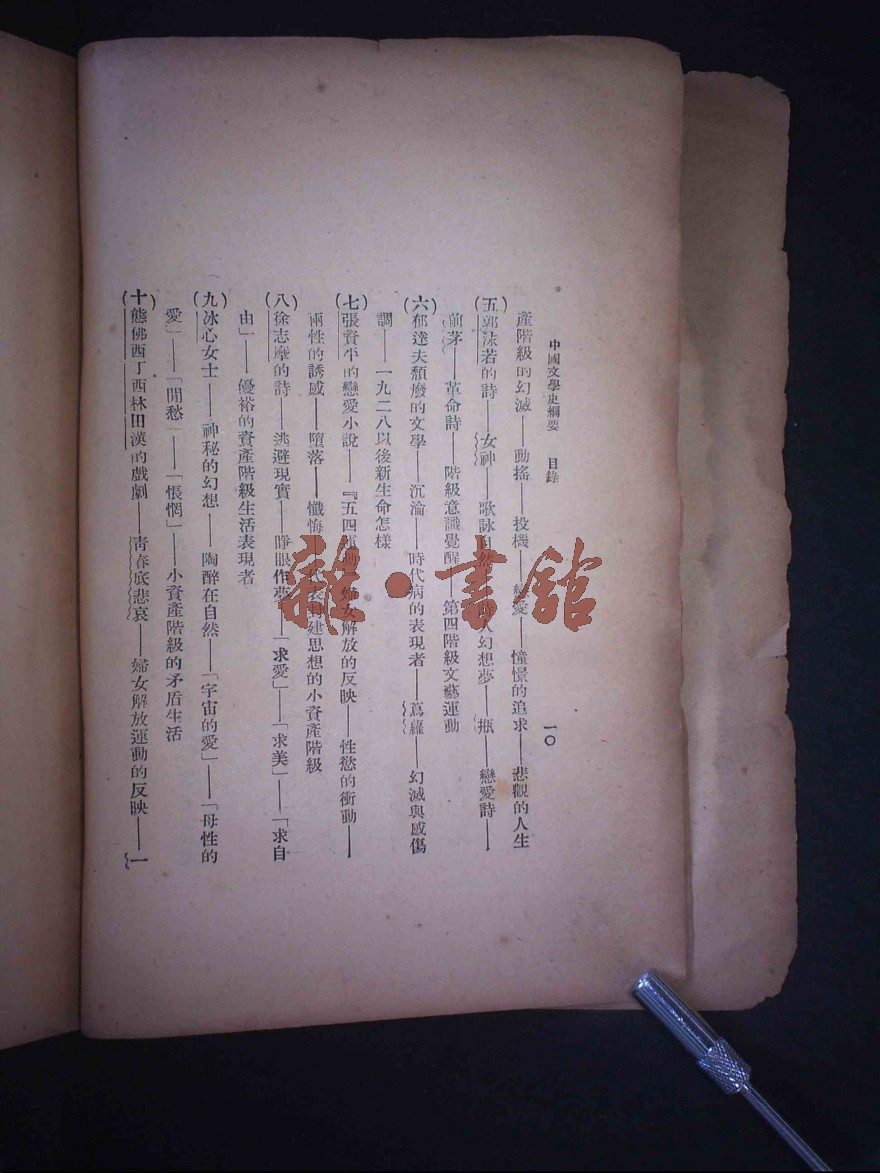 中國文學史綱要 目錄 一〇
產階級的幻滅——動搖——投機——戀愛——憧憬的追求——悲觀的人生
(五)郭沫若的詩——女神——歌詠自然 人幻想夢——瓶——戀愛詩——
前茅——革命詩——階級意識覺醒——第四階級文藝運動
(六)郁達夫頹廢的文學——沉淪——時代病的表現者——蔦蘿——幻滅與感傷
調——一九二八以後新生命怎樣
(七)張資平的戀愛小說——『五四運動 婦女解放的反映——性慾的衝動——
兩性的誘惑——墮落——懺悔 代表封建思想的小資產階級
(八)徐志摩的詩——逃避現實——睜眼作夢——「求愛」——「求美」——「求自
由」——優裕的資產階級生活表現者
(九)冰心女士——神秘的幻想——陶醉在自然——「宇宙的愛」——「母性的
愛」——「閒愁」——「悵惘」——小資產階級的矛盾生活
(十)熊佛西丁西林田漢的戲劇——青春底悲哀——婦女解放運動的反映——一
雜·書館